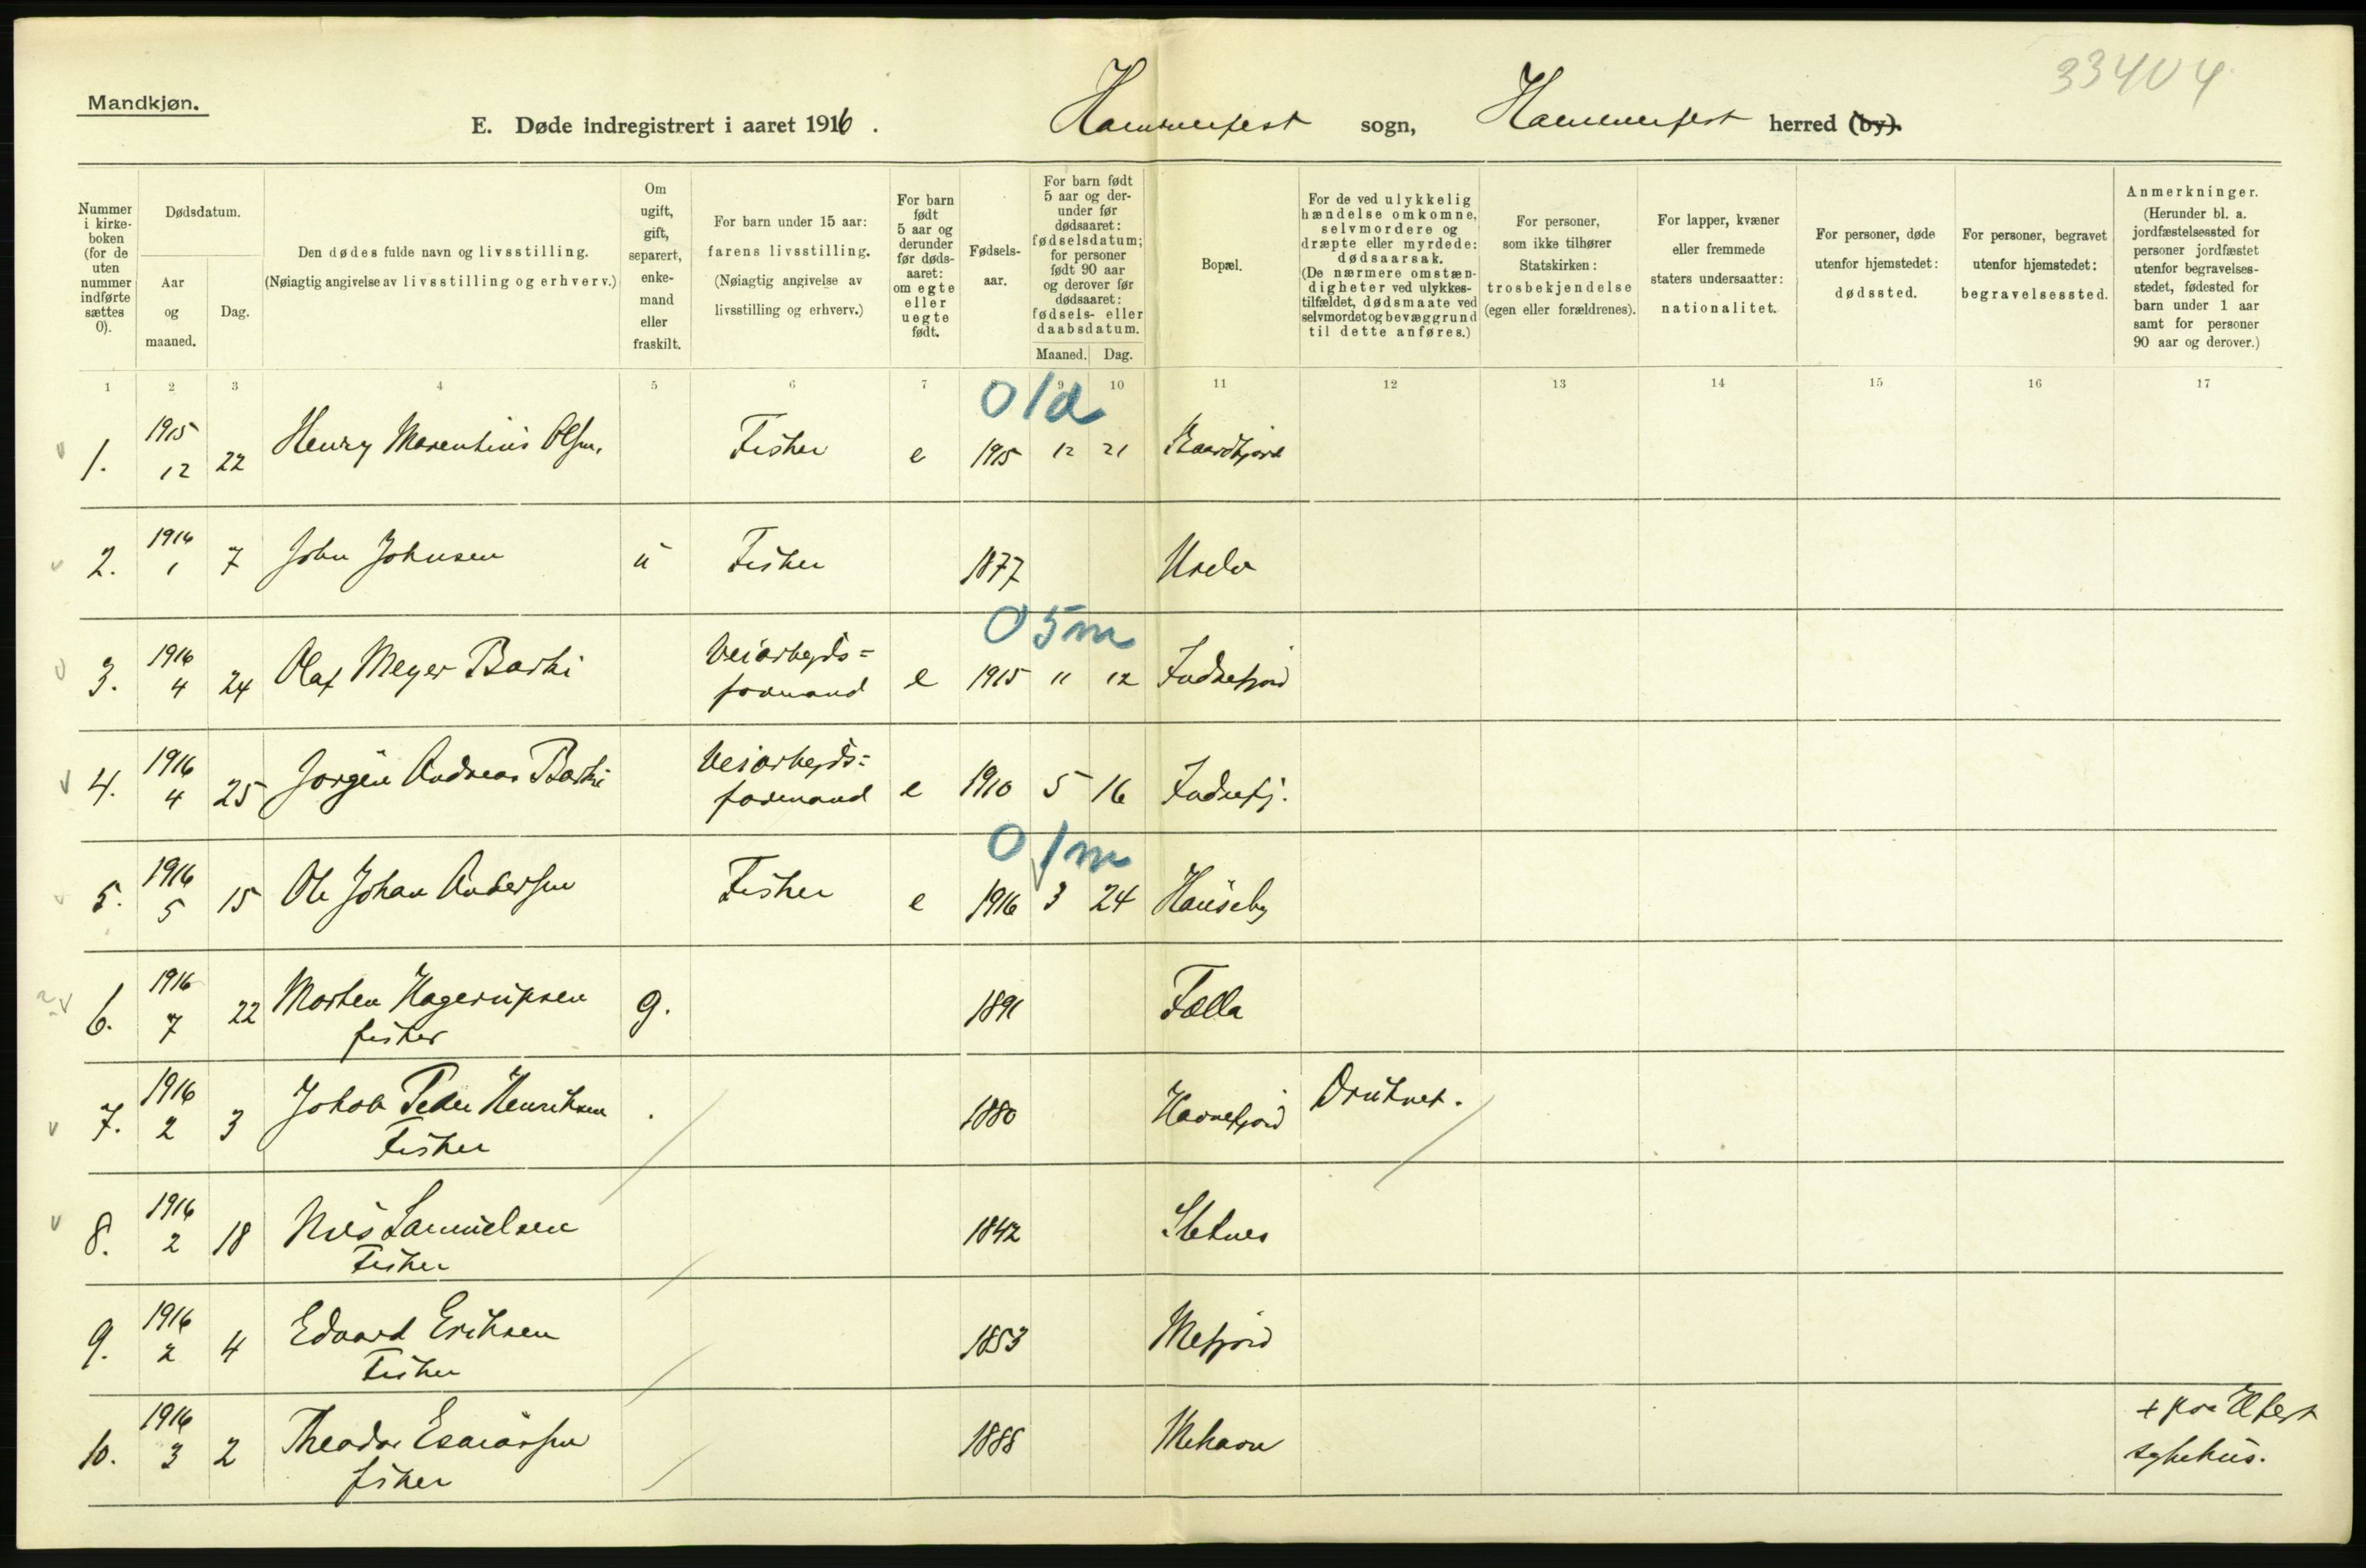 33404
Mandkjøn.
E. Døde indregistrert i aaret 1916. Hammerfest sogn, Hammerfest herred (by).
Nummer i kirkeboken (for de uten nummer indførte sættes 0).
Dødsdatum.
Aar og maaned.
Dag.
Den dødes fulde navn og livsstilling.
(Nøiagtig angivelse av livsstilling og erhverv.)
Om ugift, gift, separert, enkemand eller fraskilt.
For barn under 15 aar:
farens livsstilling.
(Nøiagtig angivelse av
livsstilling og erhverv.)
For barn født 5 aar og derunder før dødsaaret: om egte eller uegte født.
Fødselsaar.
For barn født 5 aar og derunder før dødsaaret: fødselsdatum; for personer født 90 aar og derover før dødsaaret: fødsels- eller daabsdatum.
Maaned. Dag.
Bopæl.
For de ved ulykkelig hændelse omkomne, selvmordere og dræpte eller myrdede: dødsaarsak. (De nærmere omstændigheter ved ulykkestilfældet, dødsmaate ved selvmordet og bevæggrund til dette anføres.)
For personer, som ikke tilhører Statskirken: trosbekjendelse (egen eller forældrenes).
For lapper, kvæner eller fremmede staters undersaatter: nationalitet.
For personer, døde utenfor hjemstedet: dødssted.
For personer, begravet utenfor hjemstedet: begravelsessted.
Anmerkninger.
(Herunder bl. a. jordfæstelsessted for personer jordfæstet utenfor begravelsesstedet, fødested for barn under 1 aar samt for personer 90 aar og derover.)
1 2 3 4 5 6 7 9 10 11 12 13 14 15 16 17
0 1d
1. 1915 12 22 Henry Marentius Olsen. Fisker e 1915 12 21
2. 1916 1 7 John Johnsen u Fisker 1877
0 5m
3. 1916 4 24 Olaf Meyer Barki Veiarbeids=
formand e 1915 11 12 Indrefjord
4. 1916 4 25 Jorgen Andreas Barki Veiarbeids=
formand e 1910 5 16 Indrefj.
0 1m
5. 1916 5 15 Ole Johan Andersen Fisker e 1916 3 24 Hauseby
6. 1916 7 22 Morten Hagerupsen g. 1891 Fælla
fisker
7. 1916 2 3 Jakob Peder Henriksen 1880 Havnefjord Druknet.
Fisker
8. 1916 2 18 Nils Samuelsen 1842 Sletnes
Fisker
9. 1916 2 4 Edvard Eriksen 1853 Mefjord
Fisker
10. 1916 3 2 Theodor Esaiassen 1888 Mehavn + paa Hfest
fisker sykehus.